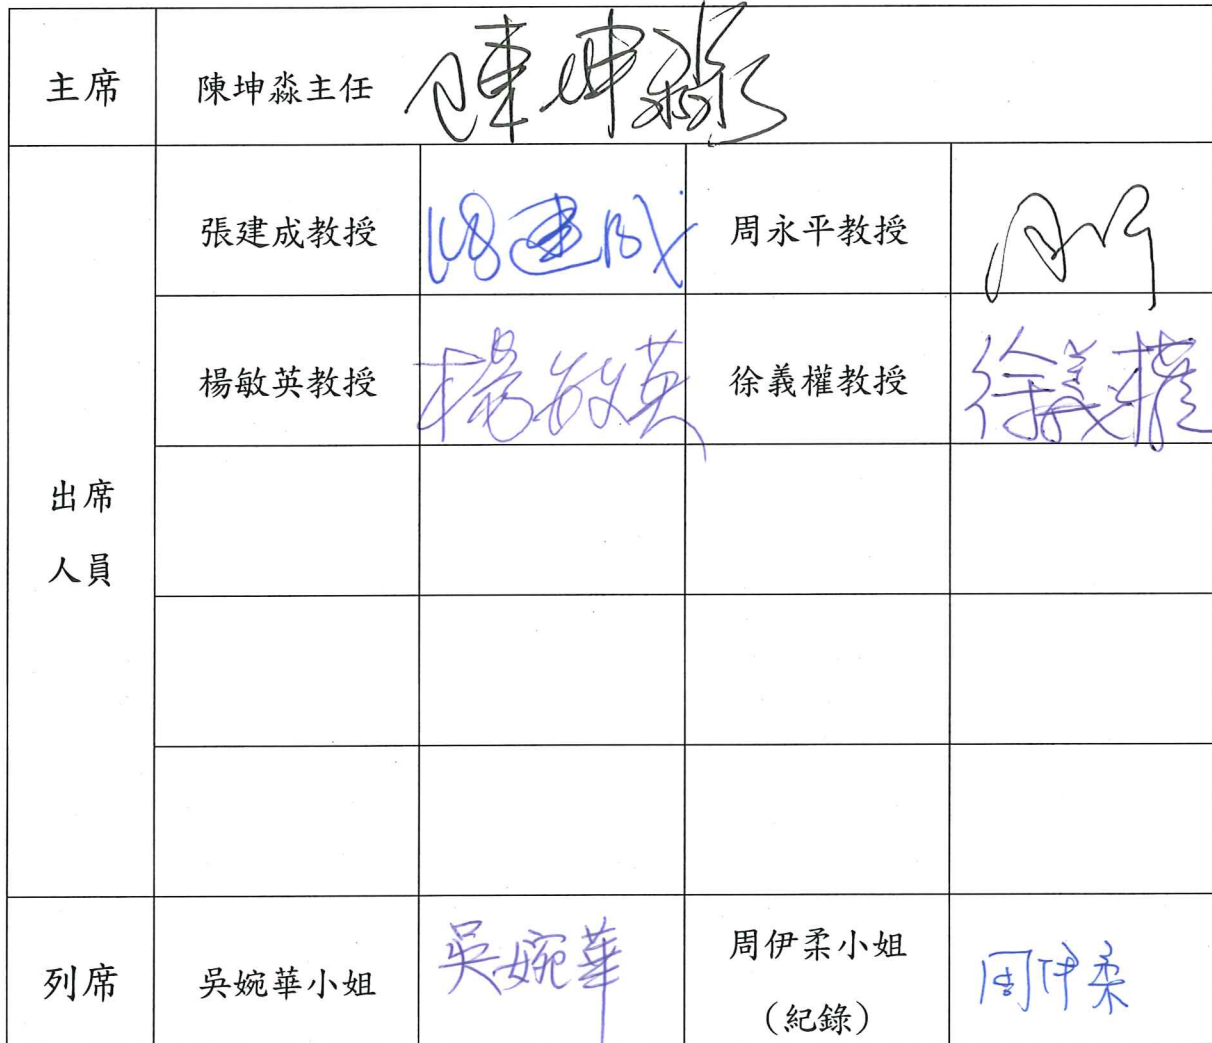 主席 陳坤淼主任 陳坤淼
張建成教授 張建成 周永平教授
楊敏英教授 楊敏英 徐義權教授 徐義權
出席
人員
列席 吳婉華小姐 吳婉華 周伊柔小姐 周伊柔
（紀錄）